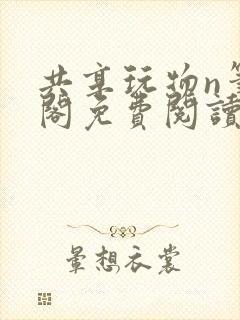 共享玩物n筆
閣免費閱讀
暈想衣裳